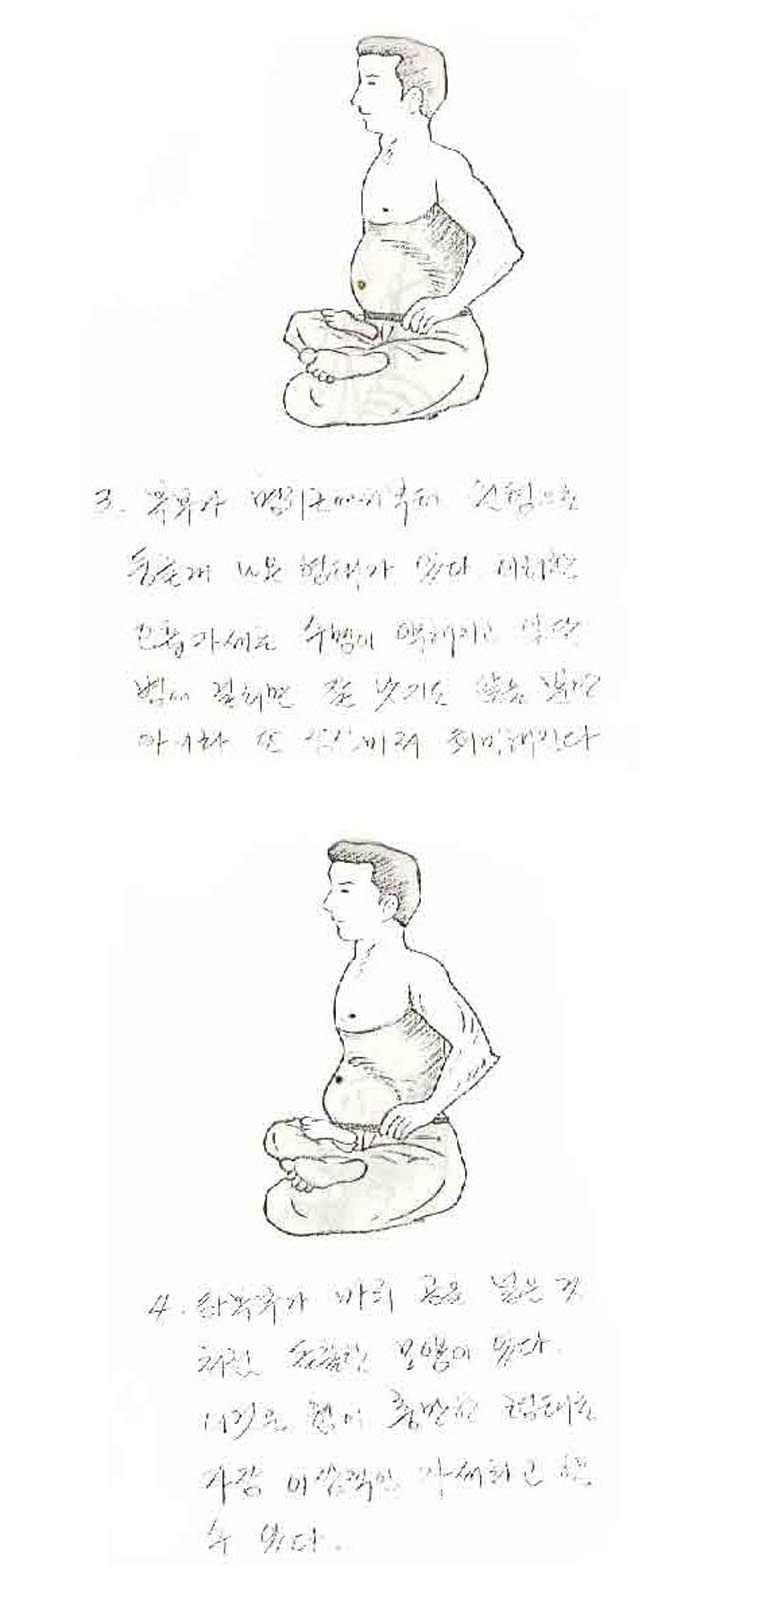 3. 복부가 명치근에서부터 원형으로
둥글게 나온 형태가 있다. 이러한
호흡자세는 수명이 약해지고 일단
병에 걸리면 잘 낫지도 않을 뿐만
아니라 또 희미해진다
4. 하복부가 마치 공을 넣은 것
처럼 둥글한 모양이 있다.
이것은 힘이 충만한 형태로
가장 이상적인 자세라고 할
수 있다.